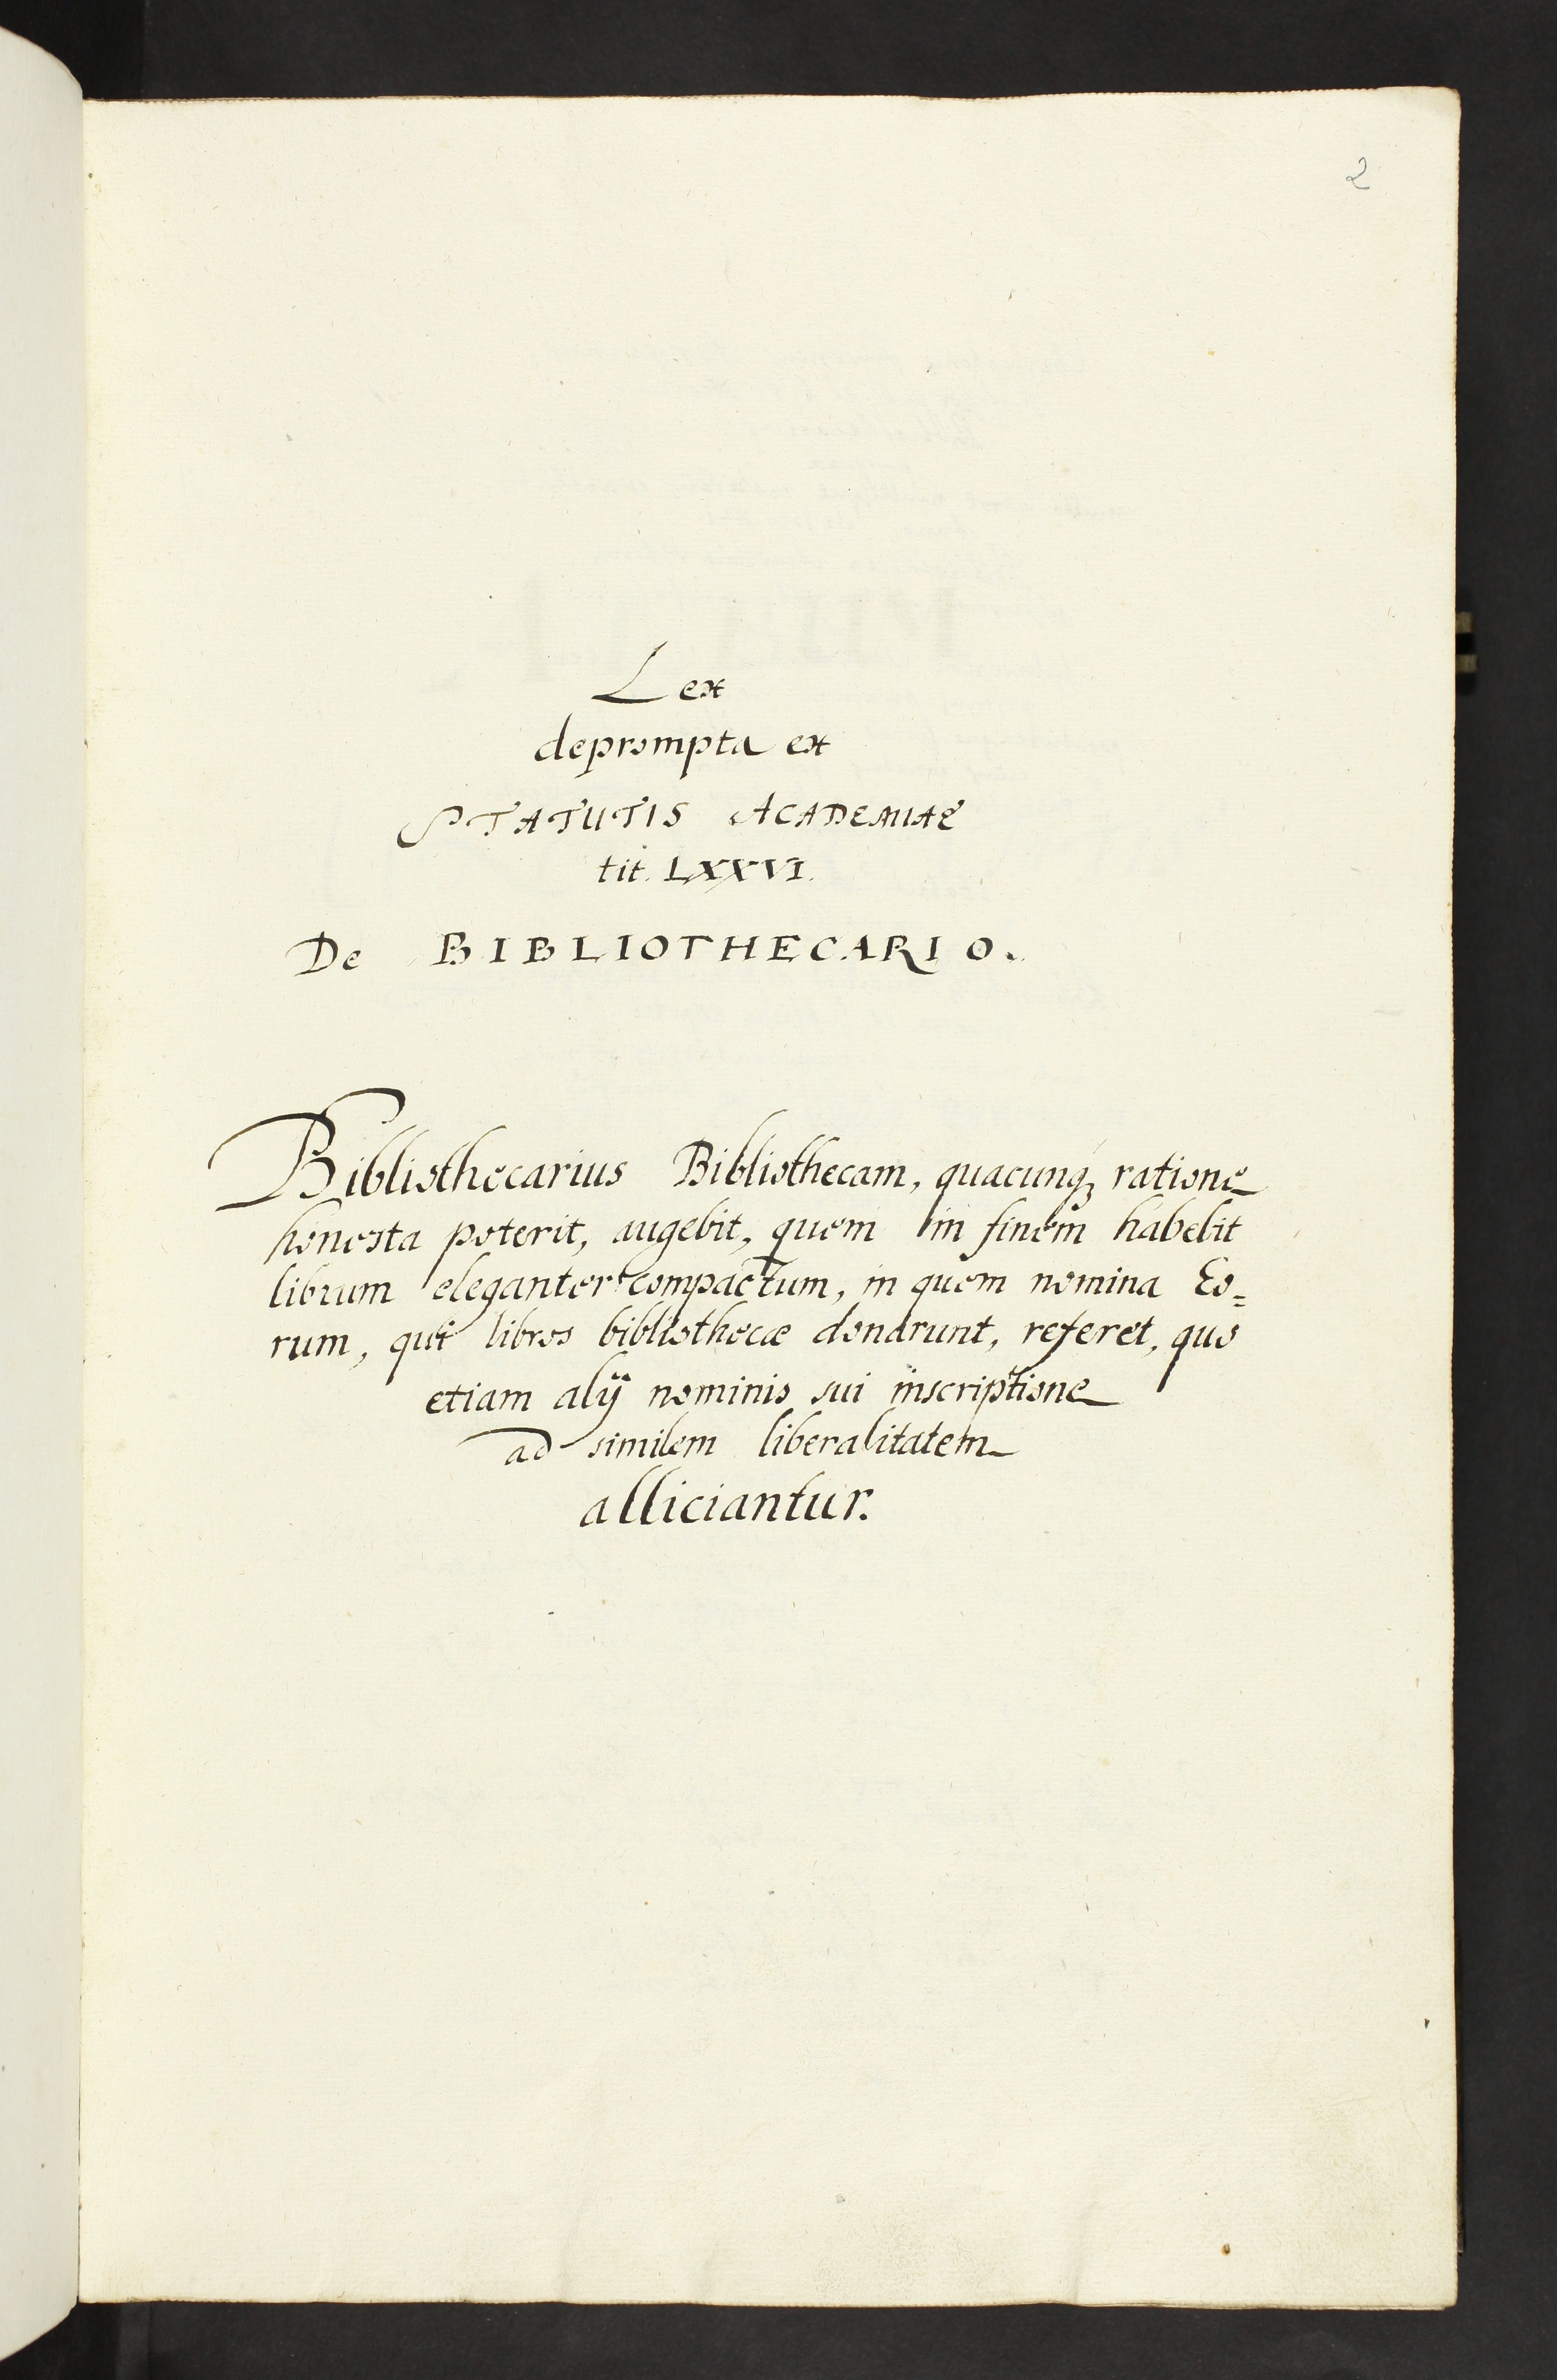 2
Lex
deprompta ex
STATUTIS ACADEMIAE
tit. LXXVI.
De BIBLIOTHECARIO.
Bibliothecarius Bibliothecam, quacunq; ratione
honesta poterit, augebit, quem in finem habebit
librum eleganter compactum, in quem nomina Eo=
rum, qui libros bibliothecæ donarunt, referet, quo
etiam alÿ nominis sui inscriptione
ad similem liberalitatem
alliciantur.